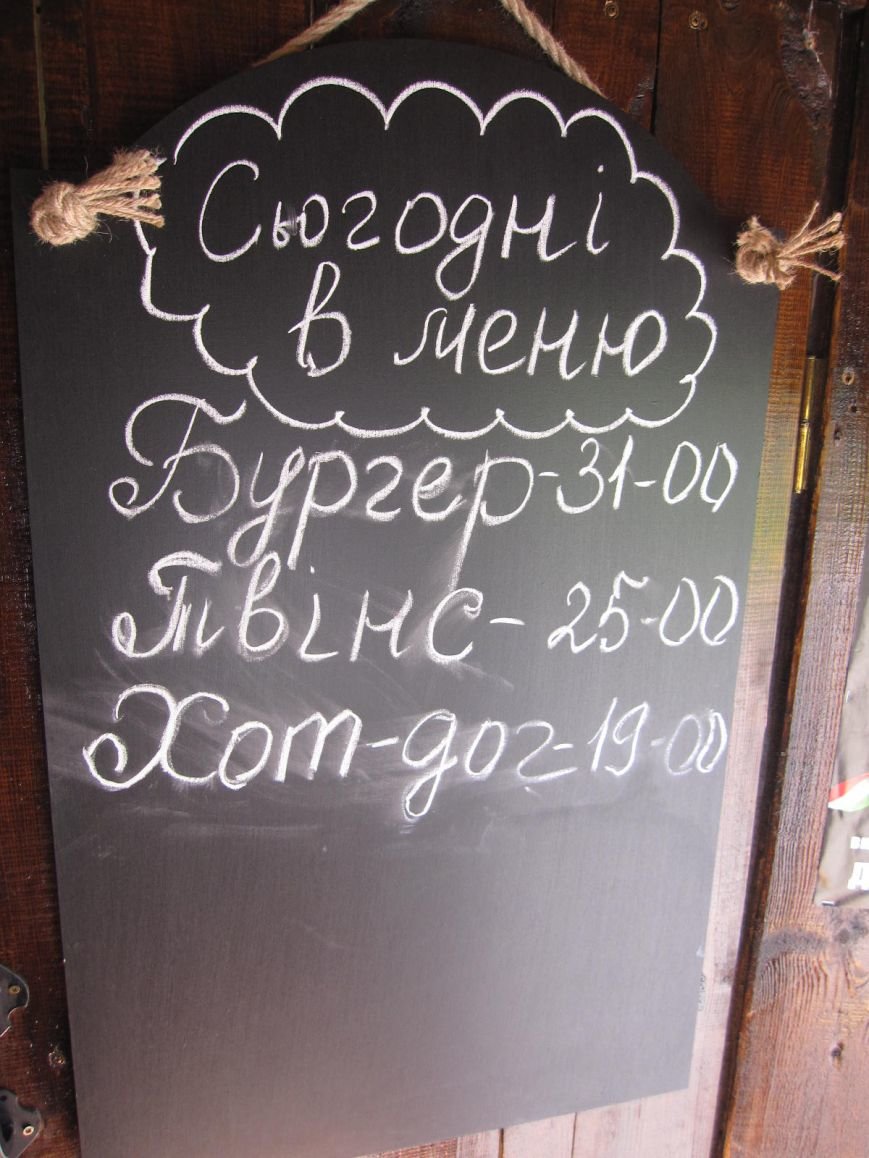 Сьогодні
в меню
Бургер-31-00
Твінс-25-00
Хот-дог-19-00